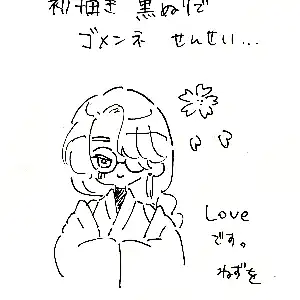 初描き 黒ぬりで
ゴメンネ せんせい...
Love
です。
ねずを